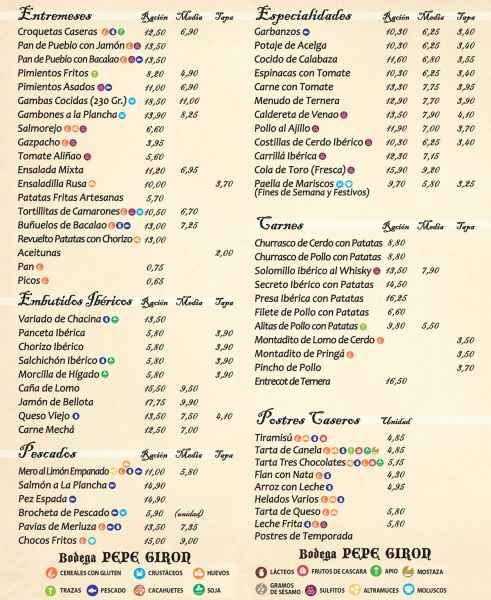 Entremeses Ración Media Tapa
Croquetas Caseras 12,50 6,90
Pan de Pueblo con Jamón 13,50
Pan de Pueblo con Bacalao 13,50
Pimientos Fritos 8,20 4,90
Pimientos Asados 11,00 6,90
Gambas Cocidas (230 Gr.) 18,50 11,00
Gambones a la Plancha 13,90 8,25
Salmorejo 6,60
Gazpacho 3,95
Tomate Aliñao 5,60
Ensalada Mixta 11,20 6,95
Ensaladilla Rusa 10,00 3,70
Patatas Fritas Artesanas 5,70
Tortillitas de Camarones 10,50 6,70
Buñuelos de Bacalao 13,00 7,25
Revuelto Patatas con Chorizo 13,00
Aceitunas 2,00
Pan 0,75
Picos 0,65
Embutidos Ibéricos Ración Media Tapa
Variado de Chacina 13,50
Panceta Ibérica 5,80 3,90
Chorizo Ibérico 5,80 3,90
Salchichón Ibérico 5,80 3,90
Morcilla de Hígado 5,80 3,90
Caña de Lomo 15,50 9,50
Jamón de Bellota 17,75 9,90
Queso Viejo 13,50 7,50 4,10
Carne Mechá 12,50 7,00
Pescados Ración Media Tapa
Mero al Limón Empanado 11,00 5,80
Salmón a La Plancha 14,90
Pez Espada 14,90
Brocheta de Pescado 5,90 (unidad)
Pavias de Merluza 13,50 7,35
Chocos Fritos 15,00 9,00
Bodega PEPE GIRON
CEREALES CON GLUTEN CRUSTÁCEOS HUEVOS
TRAZAS PESCADO CACAHUETES SOJA
Especialidades Ración Media Tapa
Garbanzos 10,30 6,25 3,40
Potaje de Acelga 10,30 6,25 3,40
Cocido de Calabaza 11,60 6,80 3,55
Espinacas con Tomate 10,30 6,25 3,40
Carne con Tomate 13,30 7,75 3,95
Menudo de Ternera 12,90 7,70 3,90
Caldereta de Venao 13,50 7,90 4,10
Pollo al Ajillo 11,90 7,00 3,70
Costillas de Cerdo Ibérico 10,30 6,25 3,40
Carrillá Ibérica 12,30 7,15
Cola de Toro (Fresca) 15,90 9,20
Paella de Mariscos 9,70 5,80 3,25
(Fines de Semana y Festivos)
Carnes Ración Media Tapa
Churrasco de Cerdo con Patatas 8,80
Churrasco de Pollo con Patatas 8,80
Solomillo Ibérico al Whisky 13,50 7,90
Secreto Ibérico con Patatas 14,50
Presa Ibérica con Patatas 16,25
Filete de Pollo con Patatas 6,60
Alitas de Pollo con Patatas 9,80 5,50
Montadito de Lomo de Cerdo 3,50
Montadito de Pringá 3,50
Pincho de Pollo 3,70
Entrecot de Ternera 16,50
Postres Caseros Unidad
Tiramisú 4,85
Tarta de Canela 4,85
Tarta Tres Chocolates 5,15
Flan con Nata 4,30
Arroz con Leche 4,95
Helados Varios
Tarta de Queso 5,80
Leche Frita 5,80
Postres de Temporada
Bodega PEPE GIRON
LÁCTEOS FRUTOS DE CASCARA APIO MOSTAZA
GRAMOS DE SÉSAMO SULFITOS ALTRAMUCES MOLUSCOS